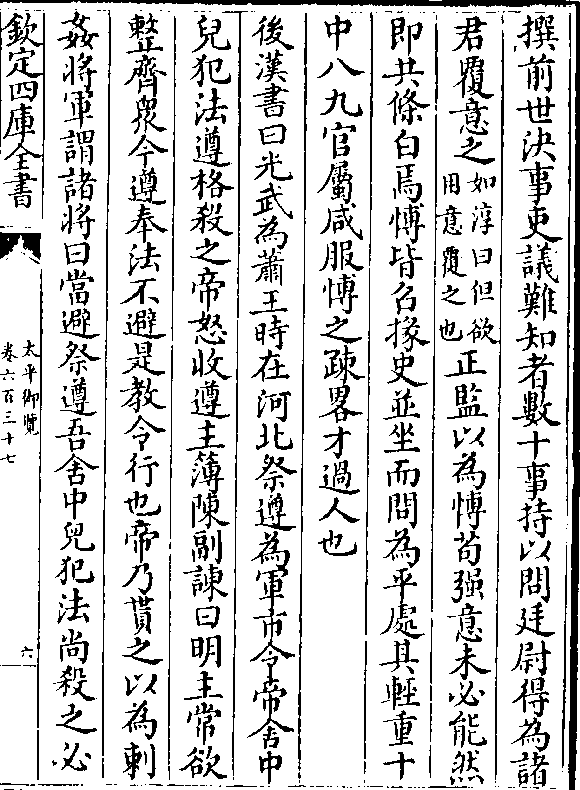 撰前世決事吏議難知者數十事持以問廷尉得為諸
君覆意之如淳曰但欲用意覆之也正監以為愽苟强意未必能然
即共條白焉愽皆召掾史並坐而問為平處其輕重十
中八九官屬咸服愽之疎畧才過人也
後漢書曰光武為蕭王時在河北祭遵為軍市令帝舎中
兒犯法遵格殺之帝怒收遵主簿陳副諫曰明主常欲
整齊衆今遵奉法不避是教令行也帝乃貰之以為刺
姦將軍謂諸將曰當避祭遵吾舎中兒犯法尚殺之必
欽定四庫全書
太平御覽
卷六百三十七
六